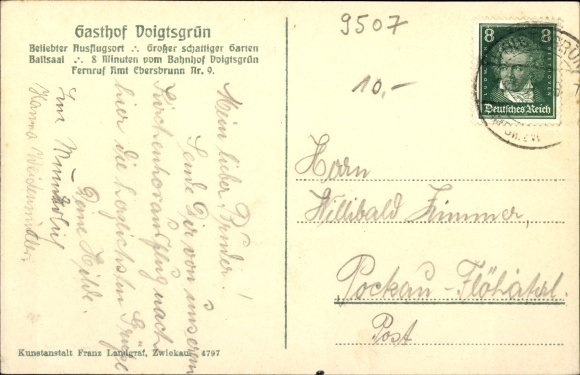 Gasthof Voigtsgrün
Beliebter Ausflugsort ∴ Großer schattiger Garten
Ballsaal ∴ 8 Minuten vom Bahnhof Voigtsgrün
Fernruf Amt Ebersbrunn Nr. 9.
9507
10,-
8 8
LUDWIG BEETHOVEN
Deutsches Reich
Mein lieber Bruder!
Sende Dir von unserm
Kirchenchorausflug nach
hier die herzlichsten Grüße
Deine Hilde.
Herrn
Willibald Zimmer,
Pockau-Flöhatal.
Post
Kunstanstalt Franz Landgraf, Zwickau. 4797